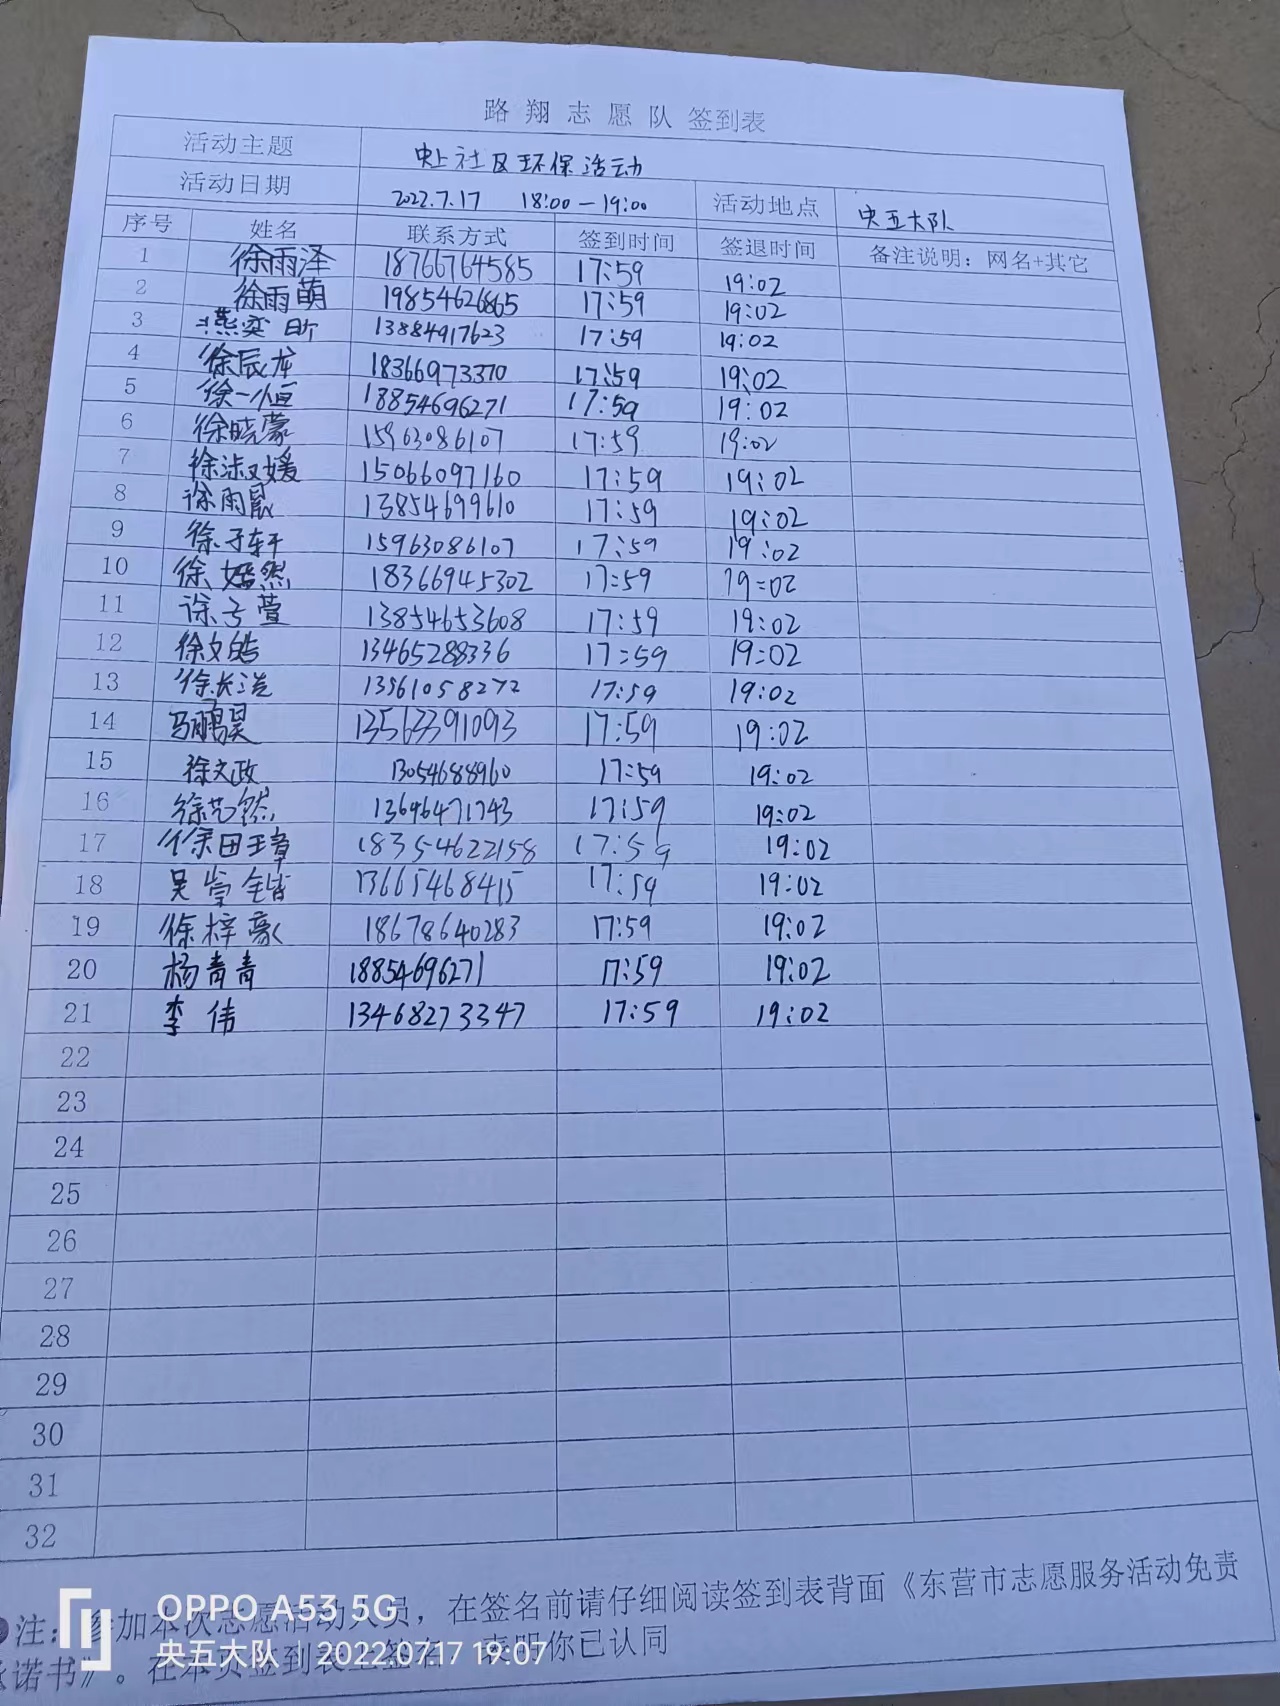 路翔志愿队签到表
活动主题 史上社区环保活动
活动日期 2022.7.17 18:00—19:00 活动地点 央五大队
序号 姓名 联系方式 签到时间 签退时间 备注说明：网名+其它
1 徐雨泽 18766764585 17:59 19:02
2 徐雨萌 19854626865 17:59 19:02
3 燕奕昕 13884917623 17:59 19:02
4 徐辰龙 18366973370 17:59 19:02
5 徐一恒 18854696271 17:59 19:02
6 徐晓蒙 15963086107 17:59 19:02
7 徐淑媛 15066097160 17:59 19:02
8 徐雨晨 13854699610 17:59 19:02
9 徐子轩 15963086107 17:59 19:02
10 徐嫣然 18366945302 17:59 19:02
11 徐子萱 13854653608 17:59 19:02
12 徐文皓 13465288336 17:59 19:02
13 徐长浩 13561058272 17:59 19:02
14 马鹏昊 13563391093 17:59 19:02
15 徐文政 13054688960 17:59 19:02
16 徐艺然 13646471743 17:59 19:02
17 徐田璋 18354622158 17:59 19:02
18 吴崇锴 13665468415 17:59 19:02
19 徐梓豪 18678640283 17:59 19:02
20 杨青青 18854696271 17:59 19:02
21 李伟 13468273347 17:59 19:02
22
23
24
25
26
27
28
29
30
31
32
注：参加本次志愿活动人员，在签名前请仔细阅读签到表背面《东营市志愿服务活动免责
承诺书》。在本页签到表上签名，表明你已认同
OPPO A53 5G
央五大队 | 2022.07.17 19:07